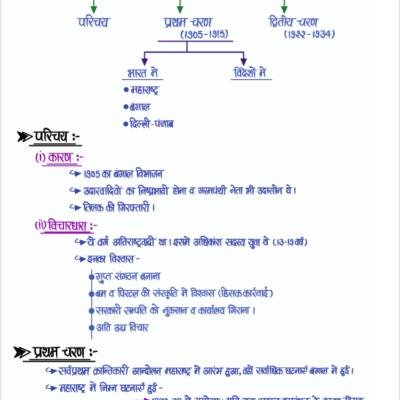 परिचय प्रथम चरण द्वितीय चरण
(1905-1915) (1922-1934)
भारत में विदेशों में
महाराष्ट्र
बंगाल
दिल्ली-पंजाब
परिचय :-
(i) कारण :-
1905 का बंगाल विभाजन
उदारवादियों का निष्प्रभावी होना व गरमपंथी नेता भी उदासीन थे।
तिलक की गिरफ्तारी।
(ii) विचारधारा :-
ये वर्ग अतिराष्ट्रवादी था। इसमें अधिकांश सदस्य युवा थे (13-17वर्ष)
इनका विश्वास -
गुप्त संगठन बनाना
बम व पिस्टल की संस्कृति में विश्वास (हिंसक कार्रवाई)
सरकारी सम्पति को नुकसान व कार्यालय गिराना।
अति उग्र विचार
प्रथम चरण :-
सर्वप्रथम क्रान्तिकारी आन्दोलन महाराष्ट्र में आरंभ हुआ, वहीं सर्वाधिक घटनाएँ बंगाल में हुई।
महाराष्ट्र में निम्न घटनाएँ हुई -